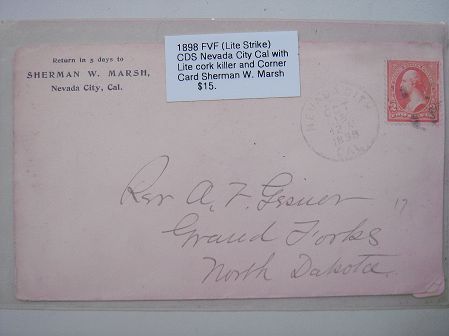 Return in 5 days to
SHERMAN W. MARSH,
Nevada City, Cal.
1898 FVF (Lite Strike)
CDS Nevada City Cal with
Lite cork killer and Corner
Card Sherman W. Marsh
$15.
NEVADA CITY
OCT
1898
CAL.
Rev A. F. Gesner
Grand Forks
North Dakota
17